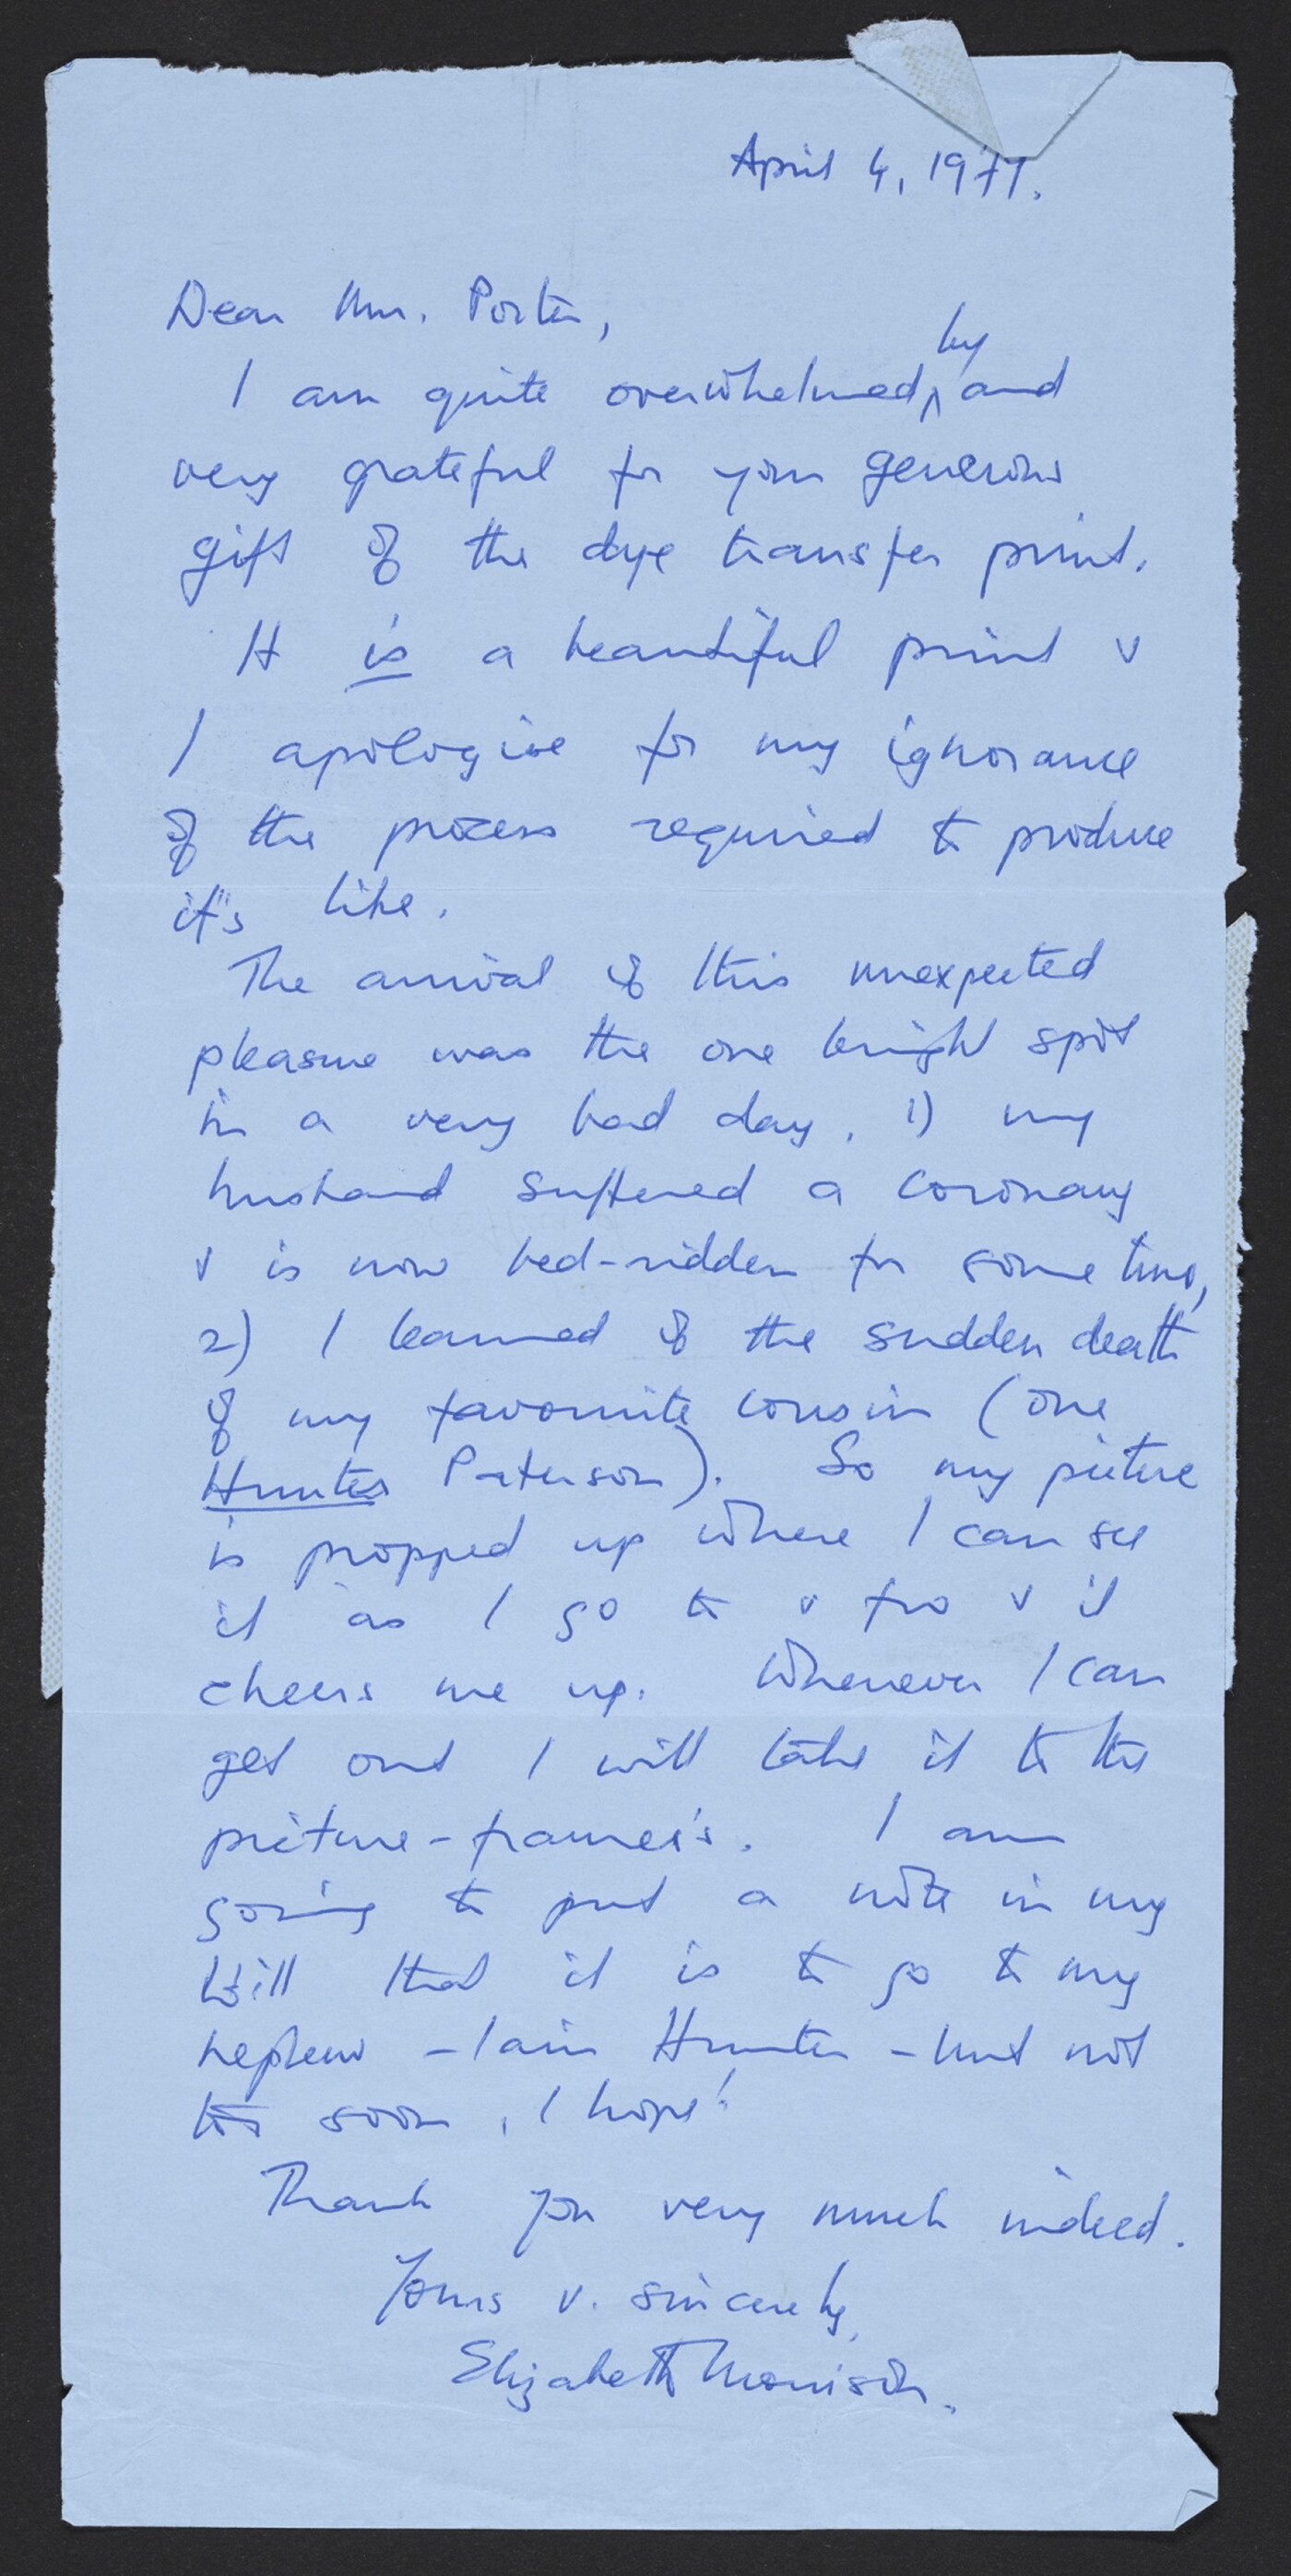 April 4, 1977.
Dear Mr. Porter,
I am quite overwhelmed, by and
very grateful for your generous
gift of the dye transfer print.
It is a beautiful print &
I apologise for my ignorance
of the process required to produce
it's like.
The arrival of this unexpected
pleasure was the one bright spot
in a very bad day. 1) my
husband suffered a coronary
& is now bed-ridden for some time,
2) I learned of the sudden death
of my favourite cousin (one
Hunter Paterson). So my picture
is propped up where I can see
it as I go to & fro & it
cheers me up. Whenever I can
get out I will take it to the
picture-framer's. I am
going to put a note in my
Will that it is to go to my
nephew - Iain Hunter - but not
too soon, I hope!
Thank you very much indeed.
Yours v. sincerely,
Elizabeth Morrison.